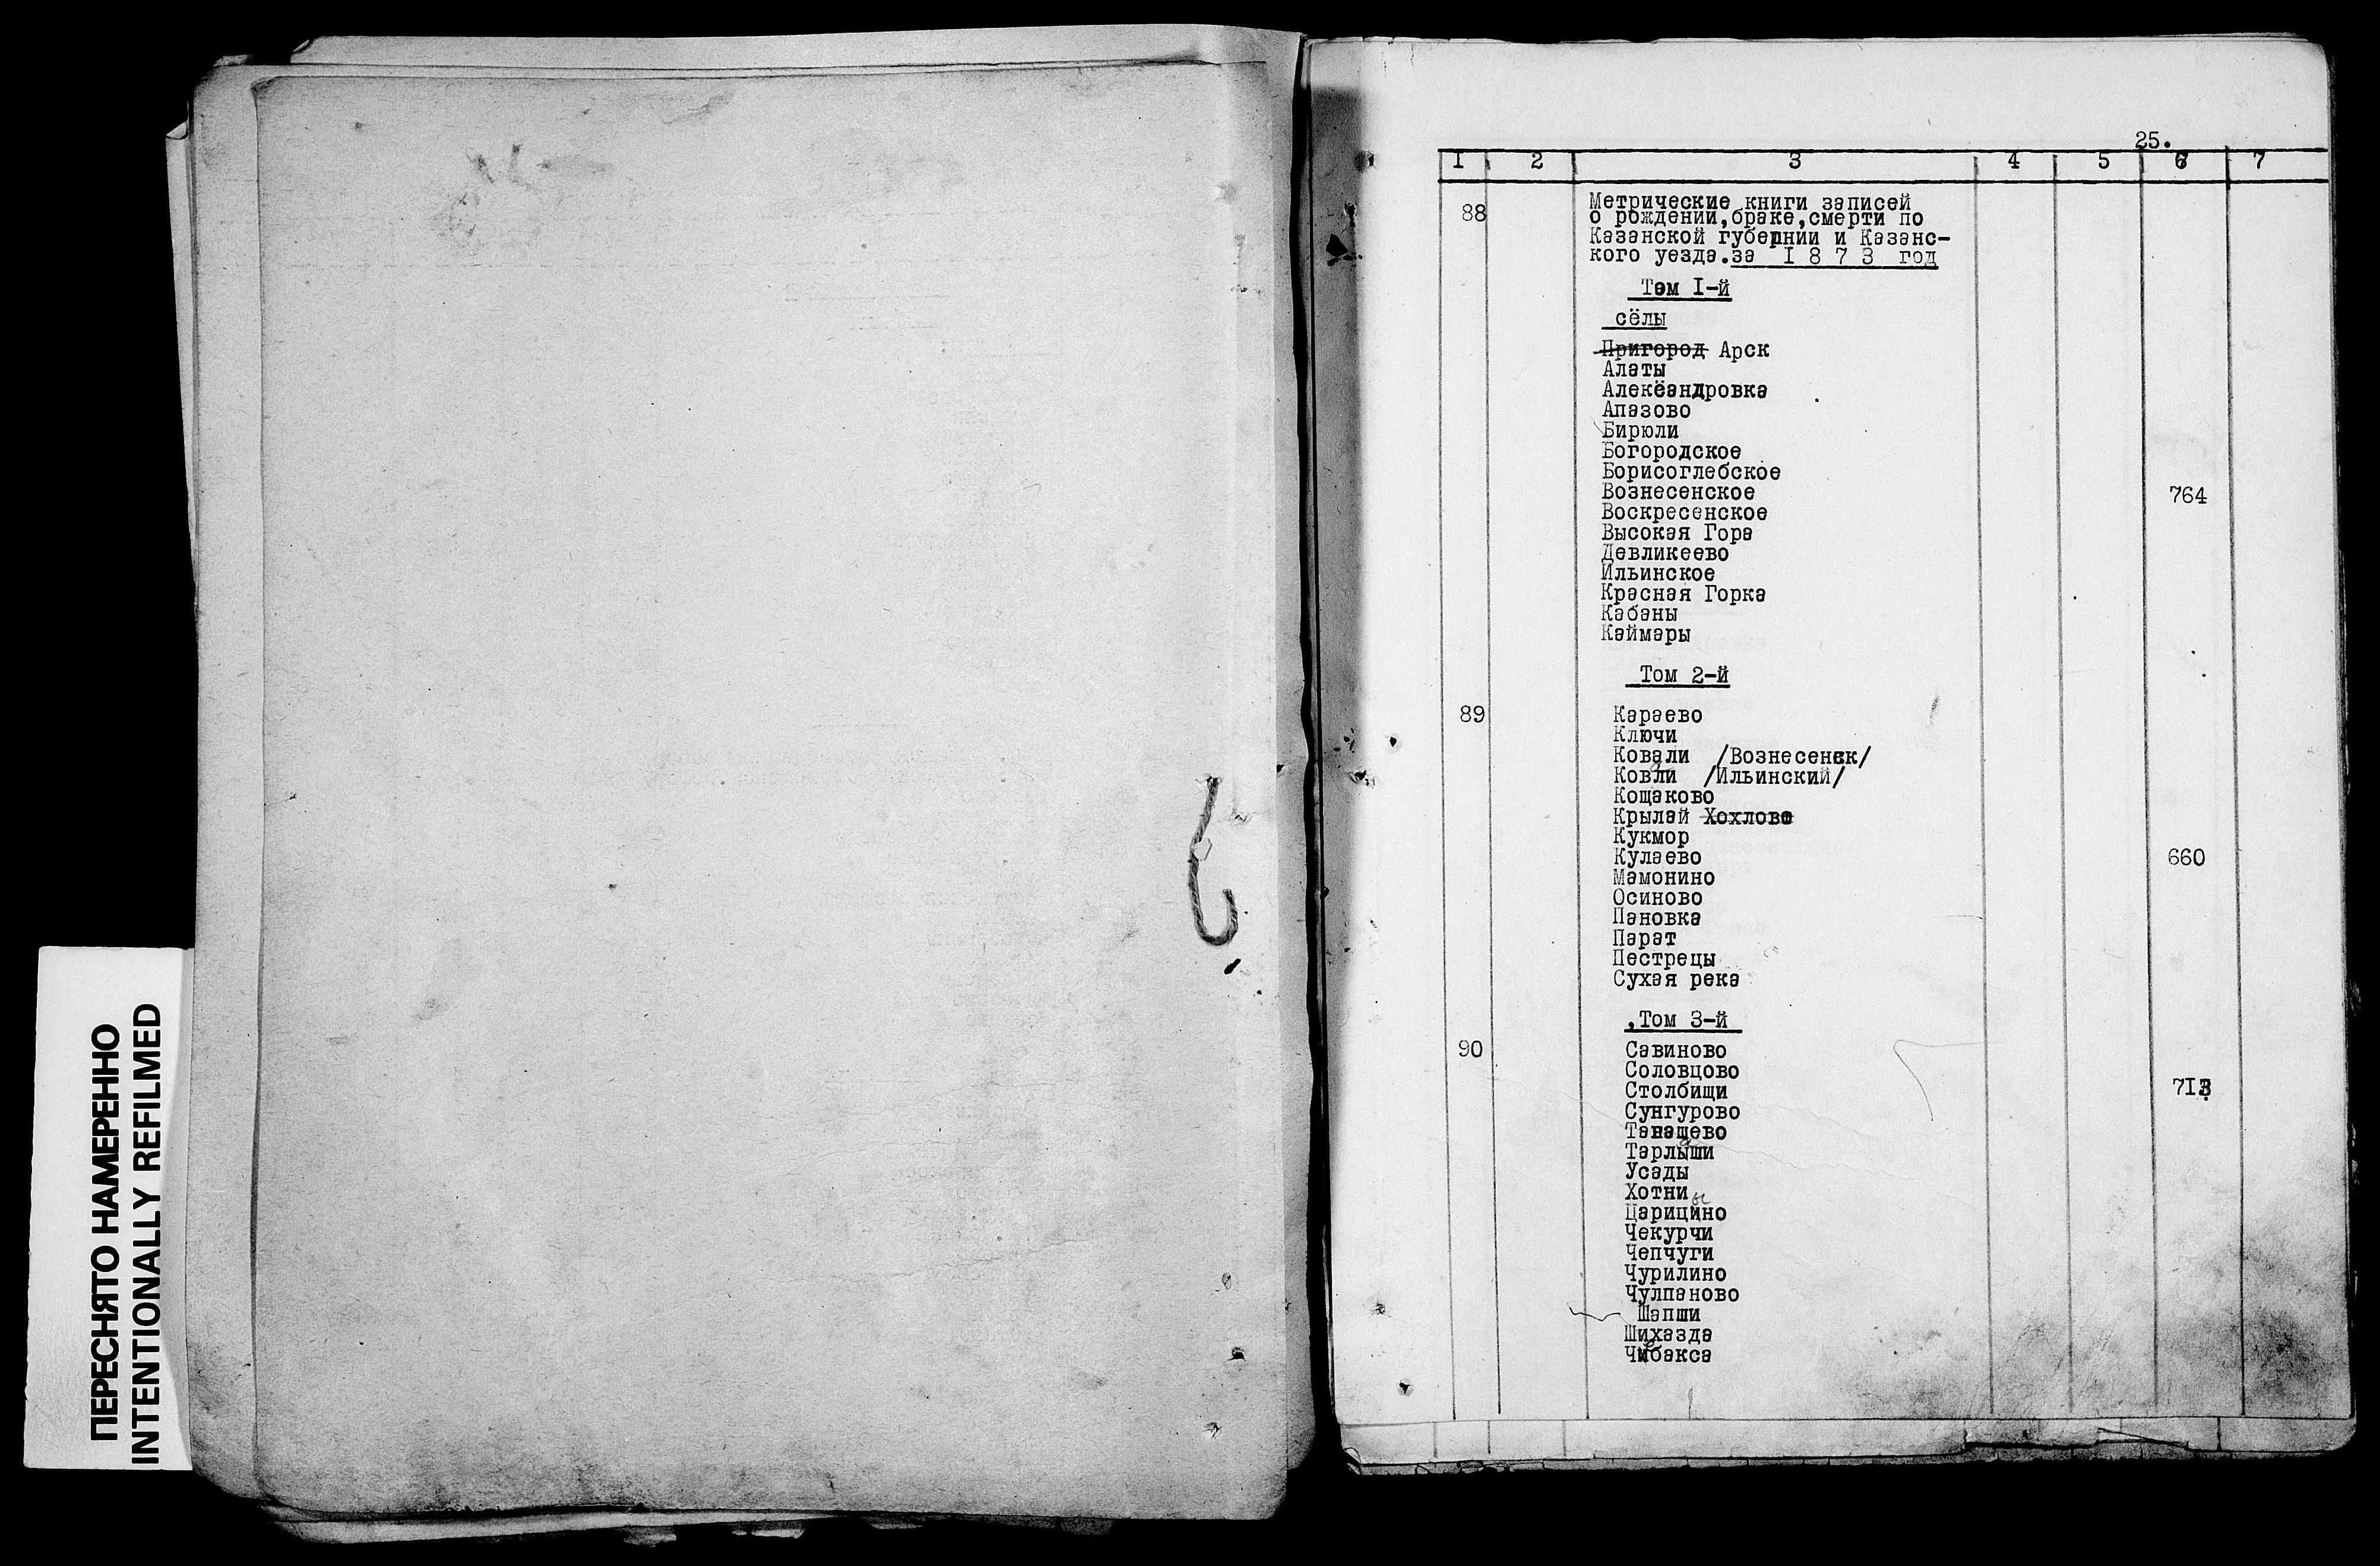 ПЕРЕСНЯТО НАМЕРЕННО
INTENTIONALLY REFILMED
25.
1 2 3 4 5 6 7
88 Метрические книги записей
о рождении, браке, смерти по
Казанской губернии и Казанс-
кого уезда. за 1 8 7 3 год
Том I-й
сёлы
Пригород Арск
Алаты
Александровка
Апазово
Бирюли
Богородское
Борисоглебское
Вознесенское 764
Воскресенское
Высокая Гора
Девликеево
Ильинское
Красная Горка
Кабаны
Каймары
Том 2-й
89 Караево
Ключи
Ковали /Вознесенск/
Ковли /Ильинский/
Кощаково
Крылай Хохлово
Кукмор
Кулаево 660
Мамонино
Осиново
Пановка
Парат
Пестрецы
Сухая река
Том 3-й
90 Савиново
Соловцово
Столбищи 713
Сунгурово
Танащево
Тарлыши
Усады
Хотни
Царицыно
Чекурчи
Чепчуги
Чурилино
Чулпаново
Шапши
Шихазда
Чибакса